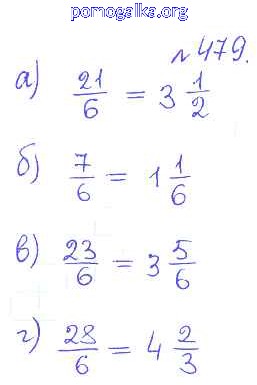 pomogalka.org
№ 479.
а) 21/6 = 3 1/2
б) 7/6 = 1 1/6
в) 23/6 = 3 5/6
г) 28/6 = 4 2/3